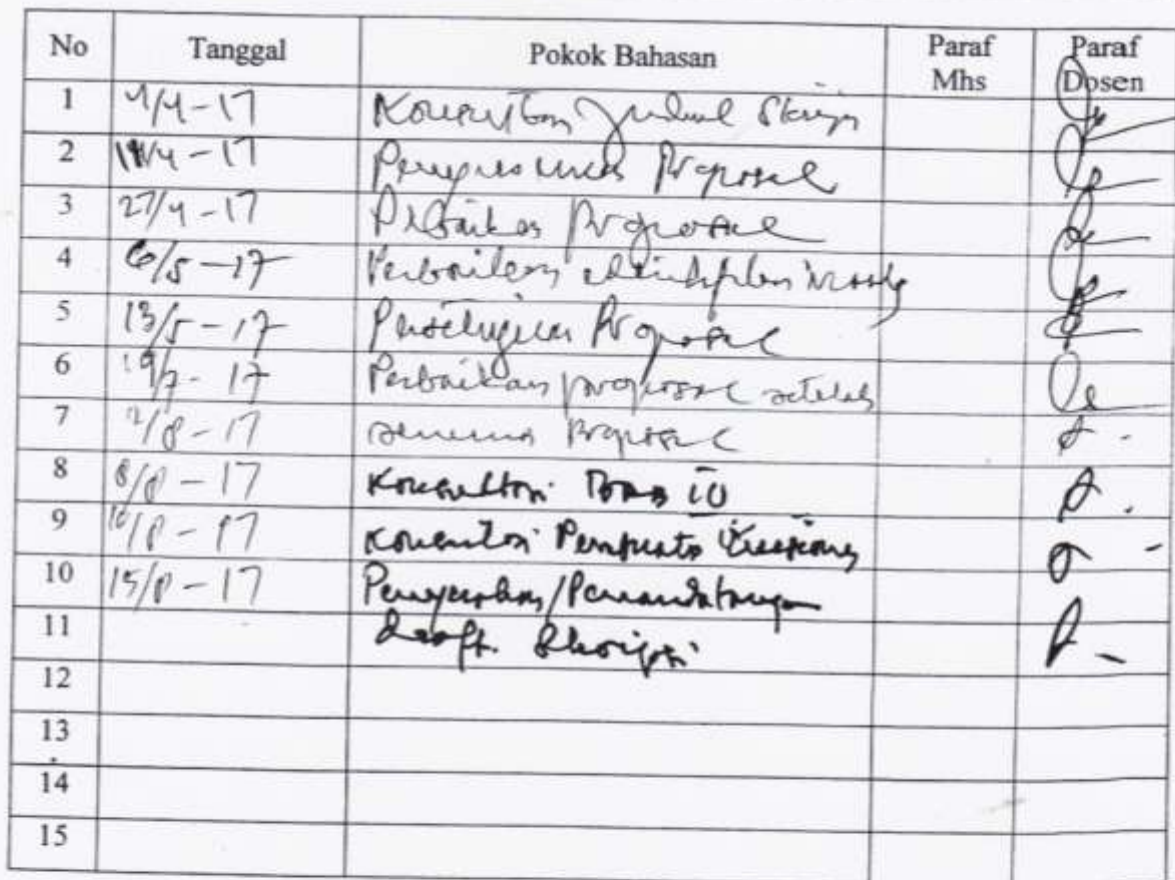 No Tanggal Pokok Bahasan Paraf Mhs Paraf Dosen
1 4/4-17 Konsultasi Judul Skripsi
2 /4-17 Proposal
3 27/4-17 Perbaikan Proposal
4 6/5-17 Perbaikan
5 13/5-17 Persetujuan Proposal
6 19/7-17 Perbaikan proposal setelah
7 2/8-17 seminar Proposal
8 8/8-17 Konsultasi
9 10/8-17 Konsultasi
10 15/8-17 Penyerahan/Penandatangan
11 draft. Skripsi
12
13
14
15